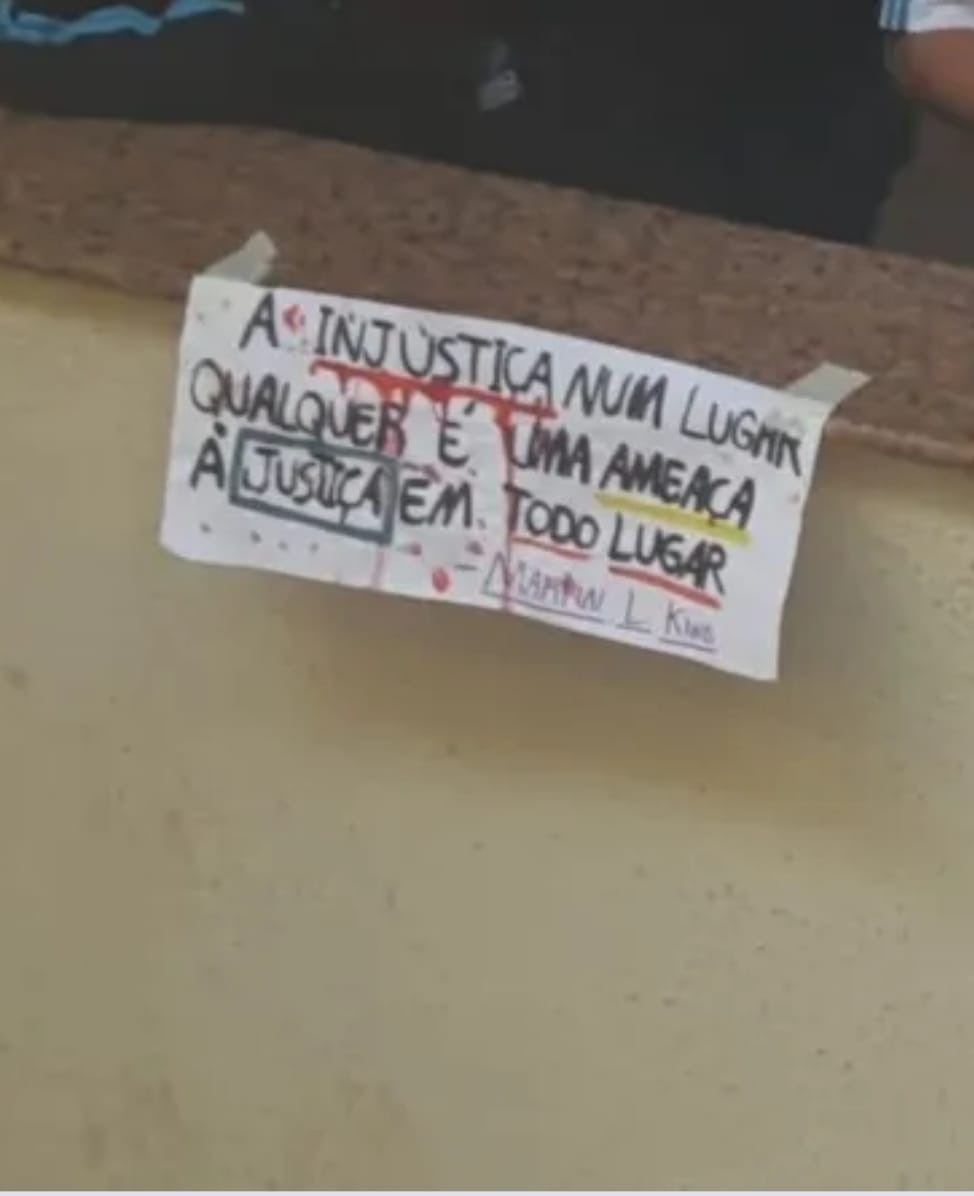 A INJUSTIÇA NUM LUGAR
QUALQUER É UMA AMEAÇA
À JUSTIÇA EM TODO LUGAR
- MARTIN L KING